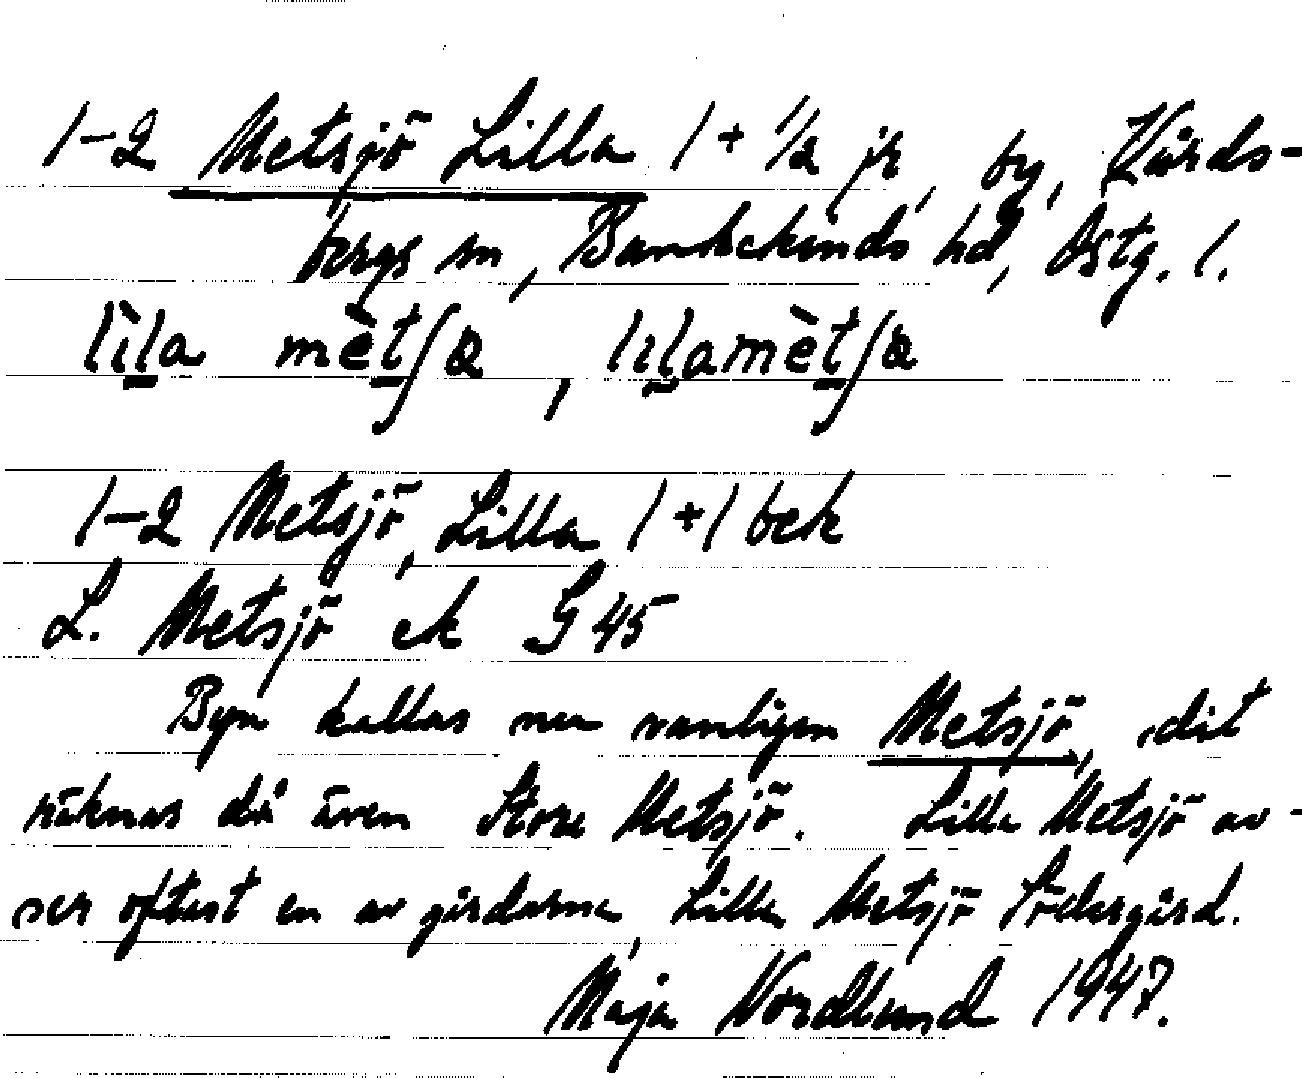 1-2 Metsjö Lilla 1 + 1/2 jr, by, Vårds-
bergs sn, Bankekinds hd, Östg. l.
lìla mètʃɷ, lılamètʃɷ
1-2 Metsjö, Lilla 1 + 1 bek
L. Metsjö ek G 45
Byn kallas nu vanligen Metsjö, dit
räknas då även Stora Metsjö. Lilla Metsjö av-
ser oftast en av gårdarna, Lilla Metsjö Södergård.
Maja Nordlund 1947.